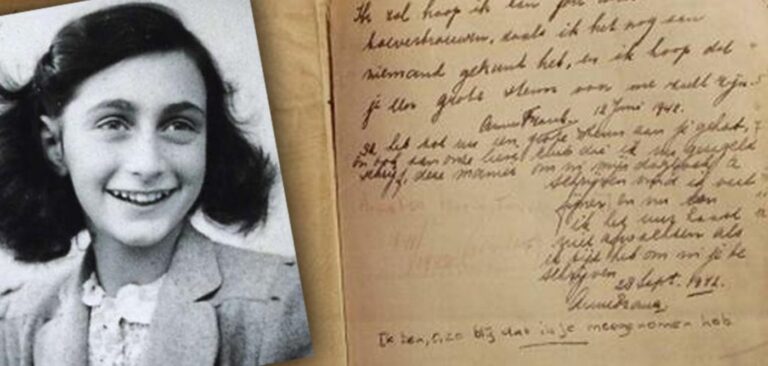 Ik zal hoop ik aan jou
toevertrouwen, zoals ik het nog aan
niemand gekund heb, en ik hoop dat
je een grote steun voor me zult zijn.
Anne Frank 12 Juni 1942.
Ik heb tot nu een grote steun aan je gehad,
en ook aan onze lieve club die ik nu geregeld
schrijf, deze manier om in mijn dagboek te
schrijven vind ik veel
fijner en nu kan
ik het uur haast
niet afwachten als
ik tijd heb om in je te
schrijven
28 Sept. 1942.
Anne Frank
Ik ben, o, zo blij dat ik je meegenomen heb